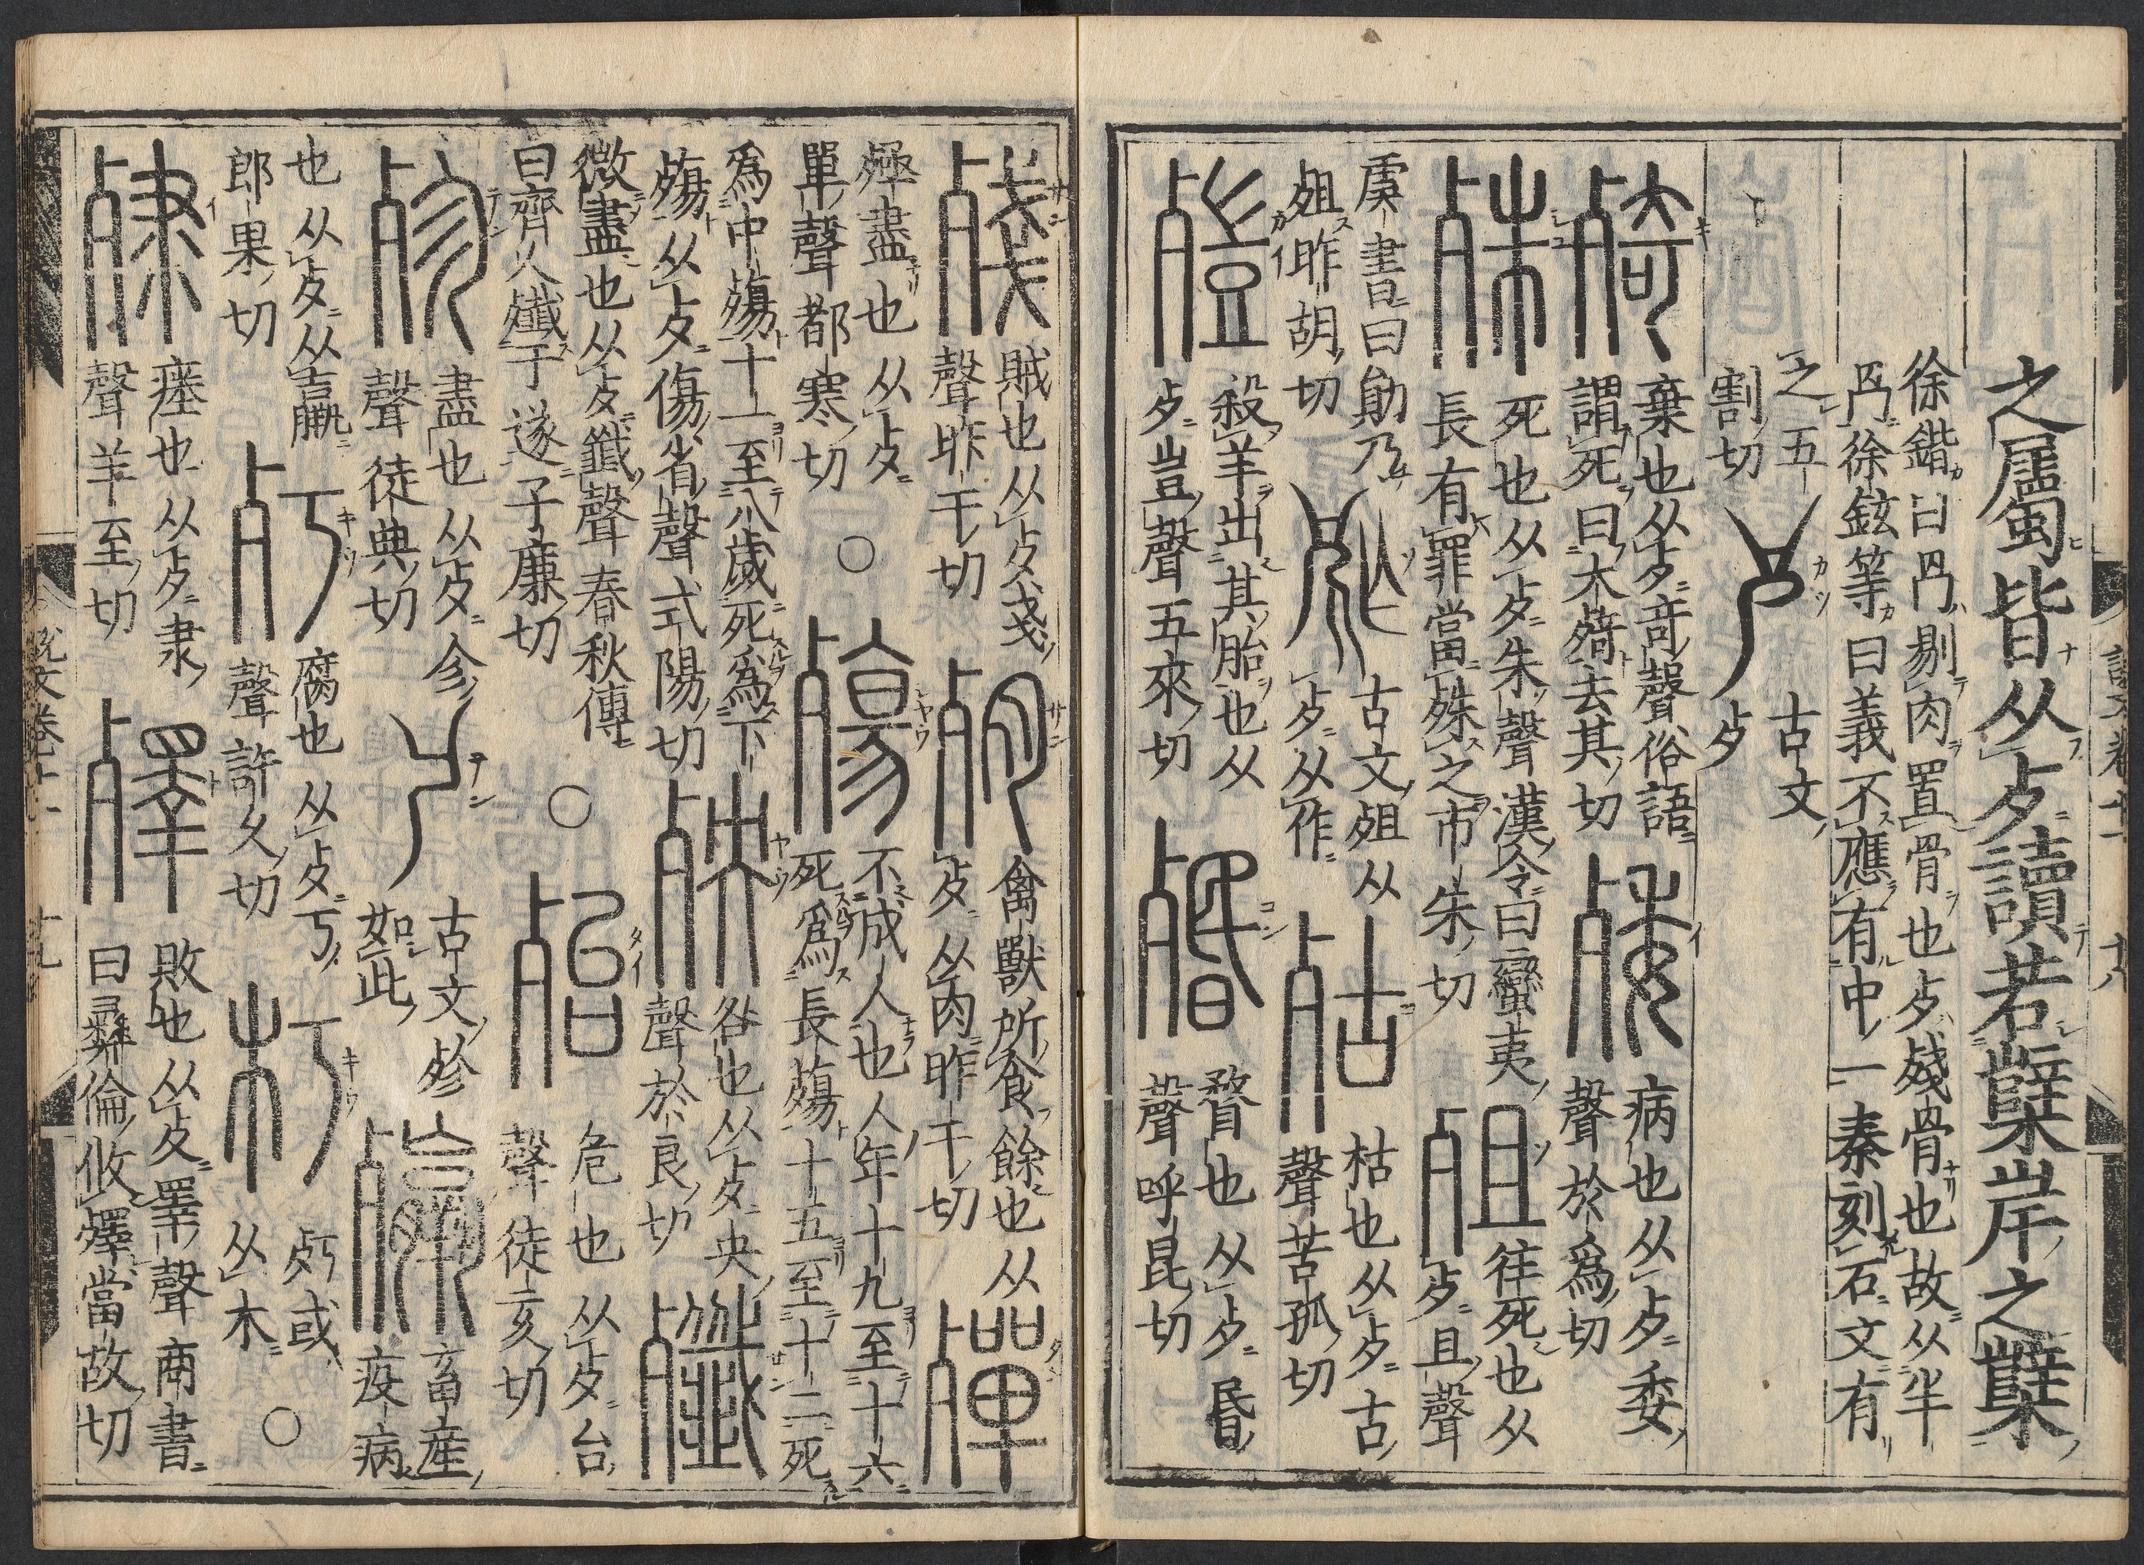 之屬皆从歺讀若櫱岸之櫱
徐鍇曰冎剔肉置骨也歺殘骨也故从半
冎徐鉉等曰義不應有中一秦刻石文有
之五割切
古文歺
㱦 棄也从歺奇聲俗語謂死曰大㱦去其切
𣨙 病也从歺委聲於爲切
殊 死也从歺朱聲漢令曰蠻夷長有罪當殊之市朱切
殂 往死也从歺且聲虞書曰勛乃殂昨胡切
古文殂从歺从作
㱠 枯也从歺古聲苦孤切
殺羊出其胎也从歺豈聲五來切
殙 瞀也从歺昏聲呼昆切
說文卷十一 十八
殘 賊也从歺戔聲昨干切
𣦼 禽獸所食餘也从歺从肉昨干切
殫 殛盡也从歺單聲都寒切
○
殤 不成人也人年十九至十六死爲長殤十五至十二死爲中殤十一至八歲死爲下殤从歺傷省聲式陽切
殃 咎也从歺央聲於良切
殲 微盡也从歺韱聲春秋傳曰齊人殲于遂子廉切
○
殆 危也从歺台聲徒亥切
殄 盡也从歺㐱聲徒典切
古文殄如此
畜產疫病也从歺从羸郎果切
㱙 腐也从歺丂聲許久切
朽 㱙或从木
○
殔 瘞也从歺隶聲羊至切
殬 敗也从歺睪聲商書曰彝倫攸殬當故切
說文卷十一 十九